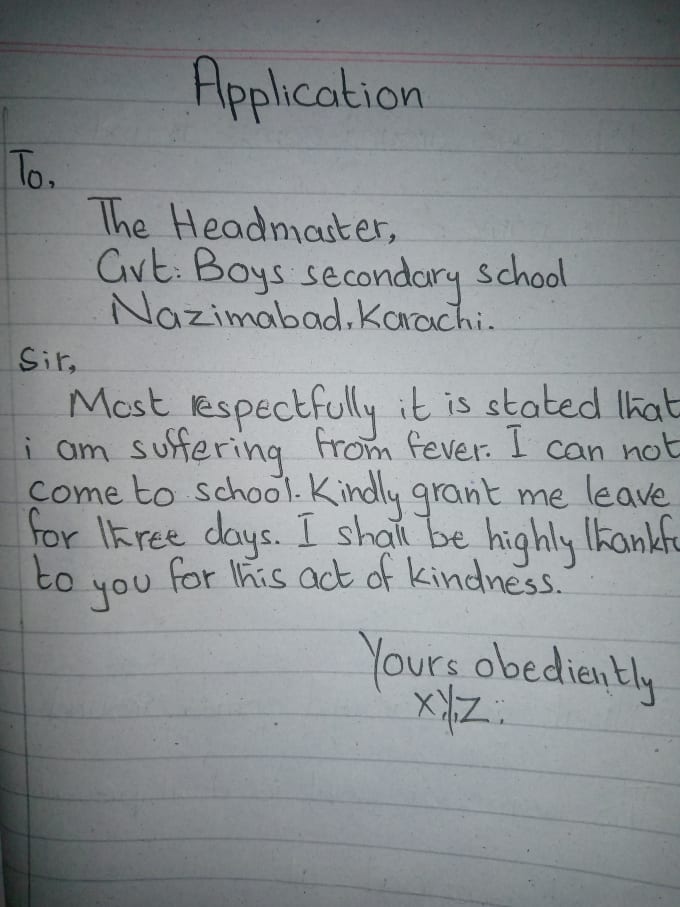 Application
To,
The Headmaster,
Gvt: Boys secondary school
Nazimabad, Karachi.
Sir,
Most respectfully it is stated that
i am suffering from fever. I can not
come to school. Kindly grant me leave
for three days. I shall be highly thankfu
to you for this act of kindness.
Yours obediently
X,Y,Z.